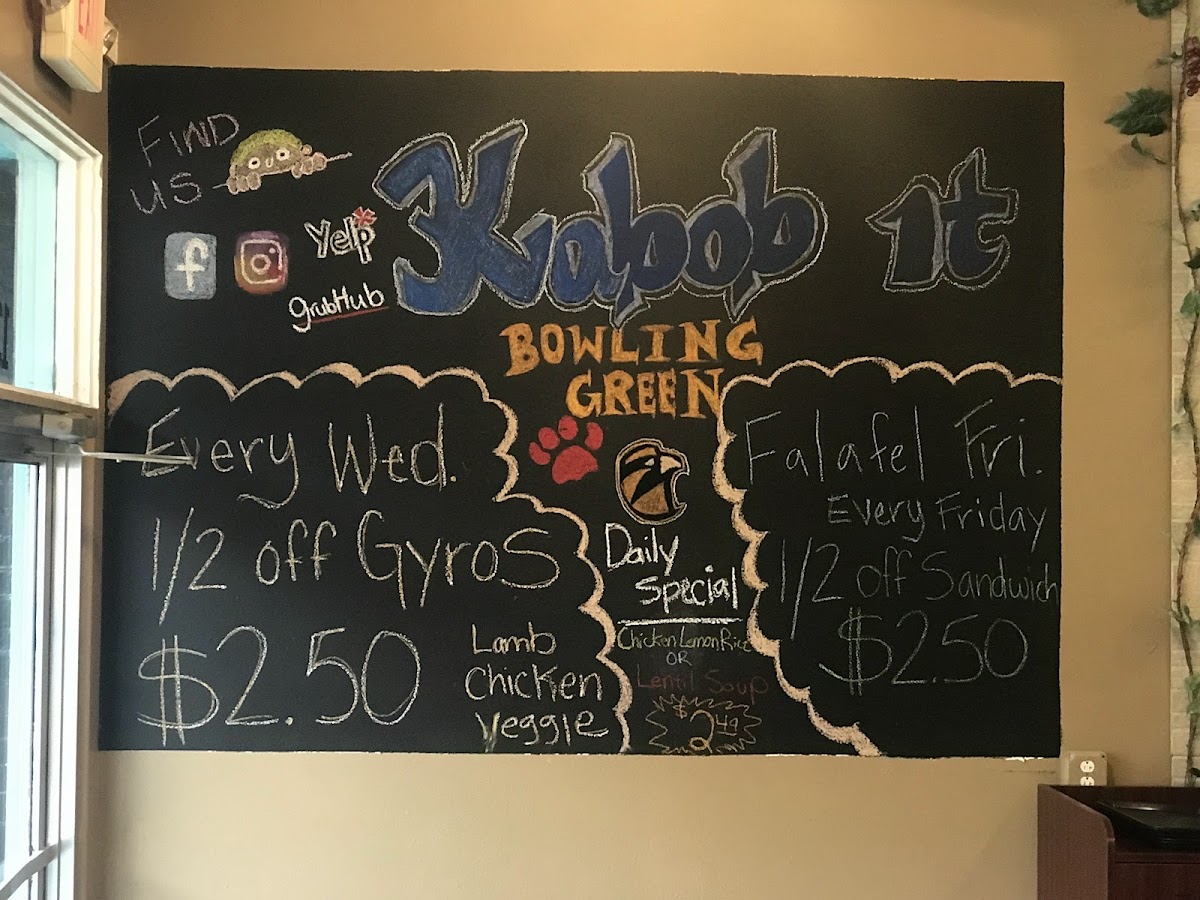 FIND
US
f
Yelp
grubHub
Kabob it
BOWLING
GREEN
Every Wed.
1/2 off Gyros
$2.50
Lamb
Chicken
Veggie
Daily
Special
Chicken Lemon Rice
OR
Lentil Soup
$2.49
Falafel Fri.
Every Friday
1/2 off Sandwich
$2.50